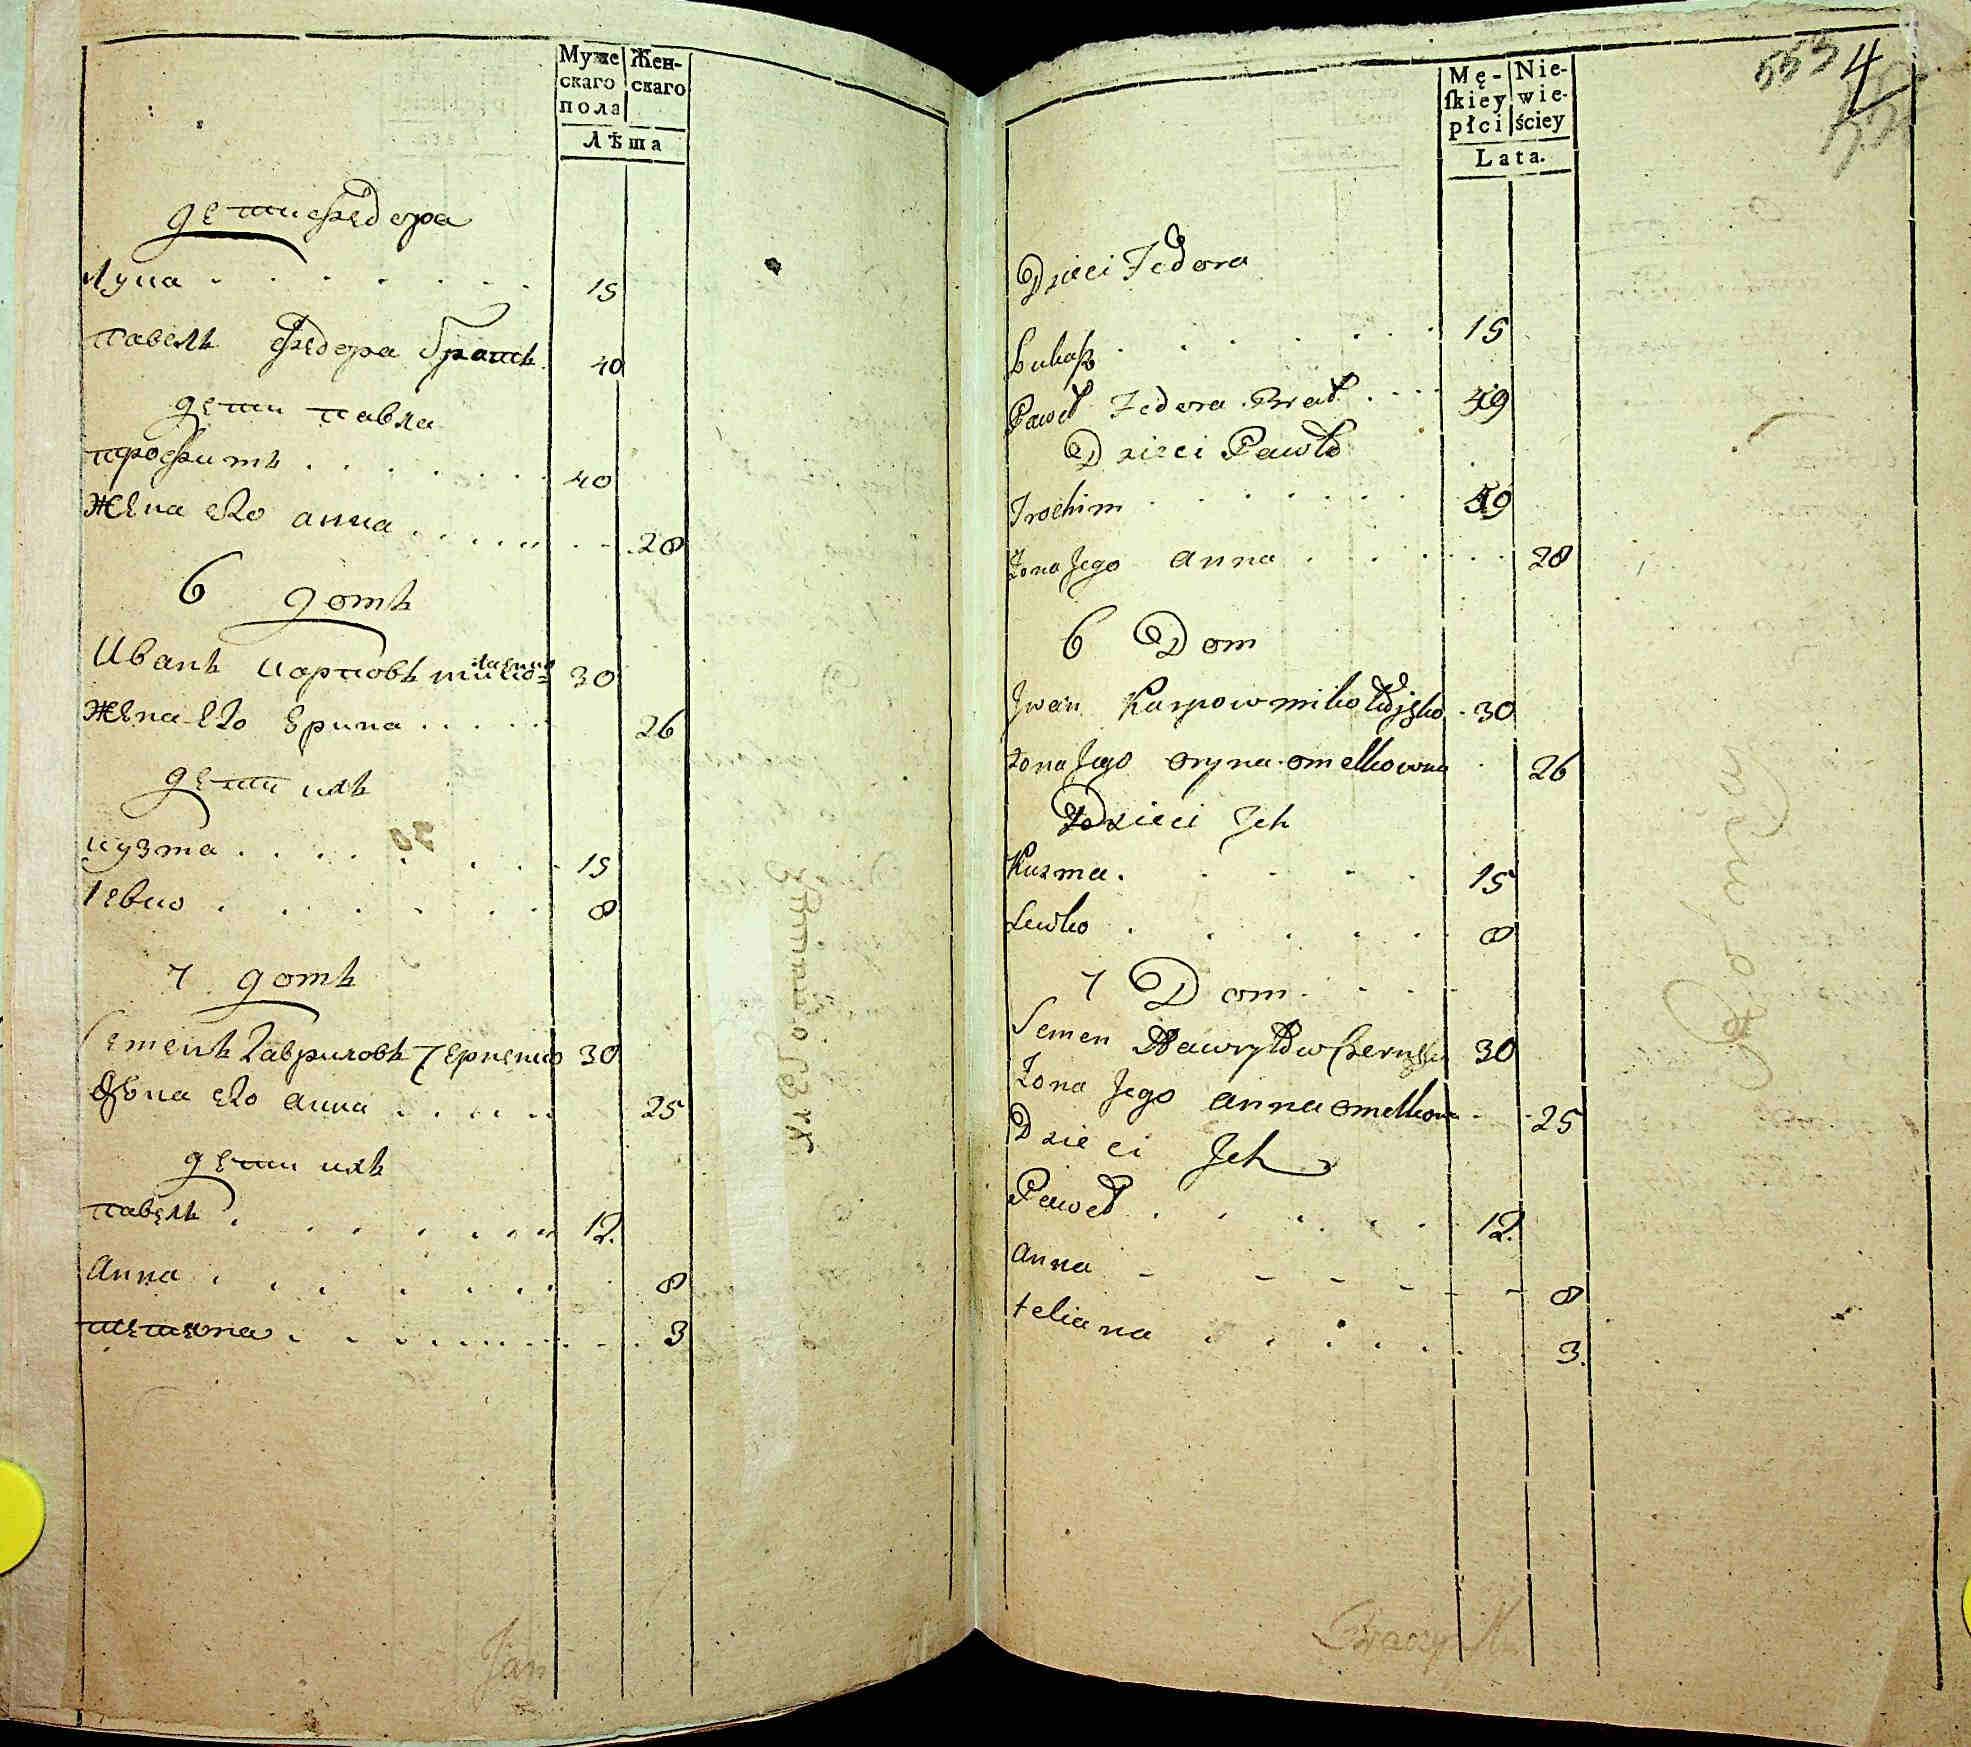 Муже Жен-
скаго скаго
пола
Лѣта
дети Федора
Лука . . . . . . 15
павелъ Федора братъ 40
дети павла
трофимъ . . . . . . 40
жена его анна . . . . . . 28
6 домъ
Иванъ карповъ миколаенко 30
жена его Ерина . . . . . 26
дети ихъ
кузма . . . . . . 15
левко . . . . . . 8
7 домъ
Семенъ Гавриловъ Черненко 30
жена его анна . . . . . 25
дети ихъ
павелъ . . . . . . 12.
Анна . . . . . . 8
тетяна . . . . . . 3
Jan
Mę- Nie-
ſkiey wie-
płci ściey
Lata.
553 4
Dzieci Fedora
Łukaſz . . . . . . 15
Paweł Fedora Brat . . . 49
Dzieci Pawła
Trochim . . . . . . 49
Żona Jego anna . . . . . 28
6 Dom
Jwan Karpow mikołajęko . 30
żona Jego oryna omelkowna . 26
Dzieci Jch
Kuzma . . . . . 15
Lewko . . . . . . 8
7 Dom . . . .
Semen Hawryłow Czernęko 30
Żona Jego anna omelkowna - - 25
Dzieci Jch
Paweł . . . . . . 12.
anna - - - - - - 8
teliana . . . . . . 3.